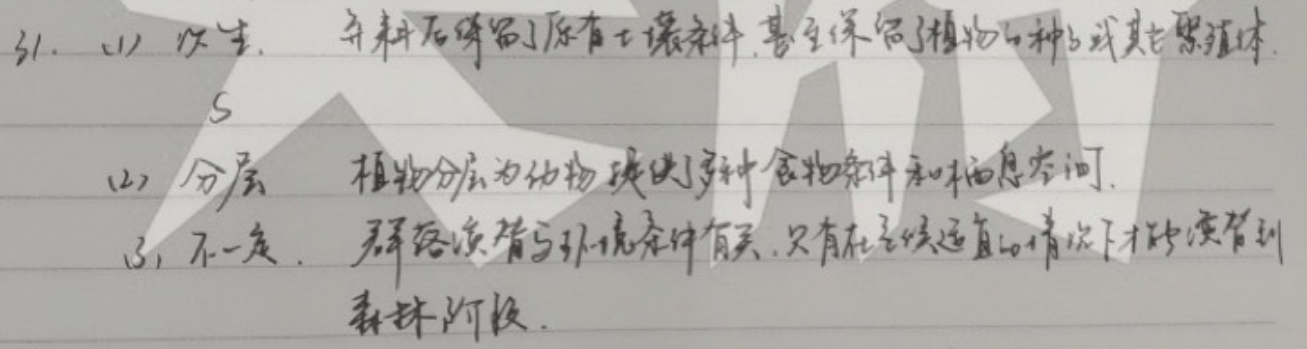 31. (1) 次生. 弃耕后保留了原有土壤条件,甚至保留了植物的种子或其它繁殖体.
S
(2) 分层 植物分层为动物提供了多种食物条件和栖息空间.
(3) 不一定. 群落演替与环境条件有关.只有在气候适宜的情况下才能演替到
森林阶段.